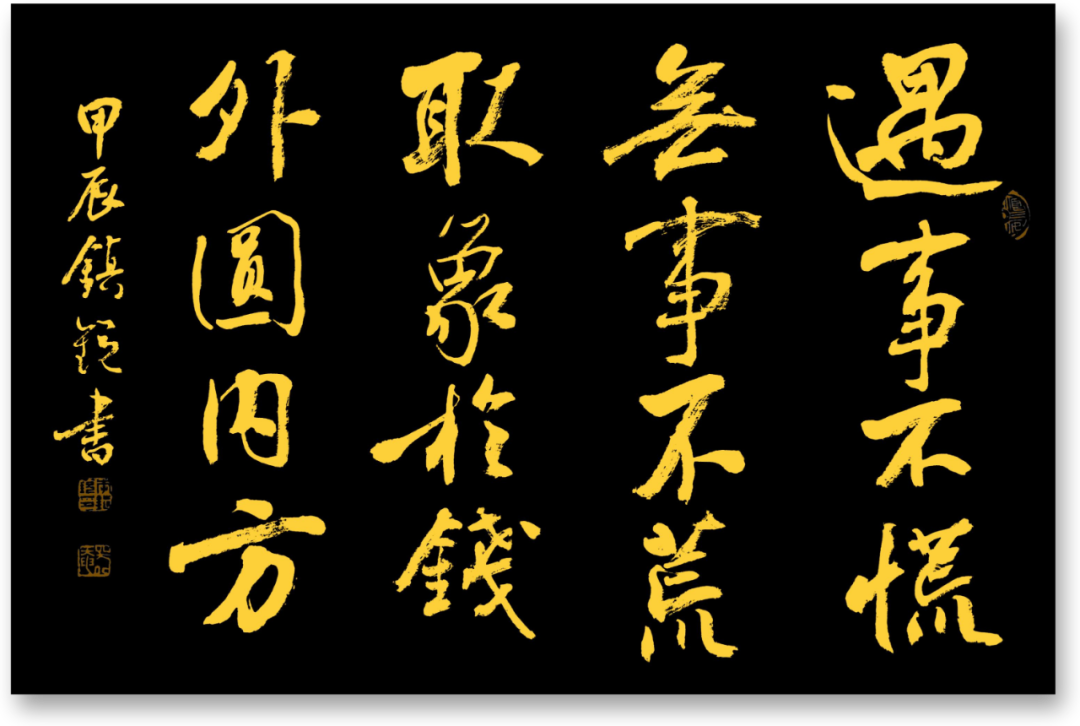 遇事不慌
無事不荒
取象於錢
外圓內方
甲辰鎮鋭書